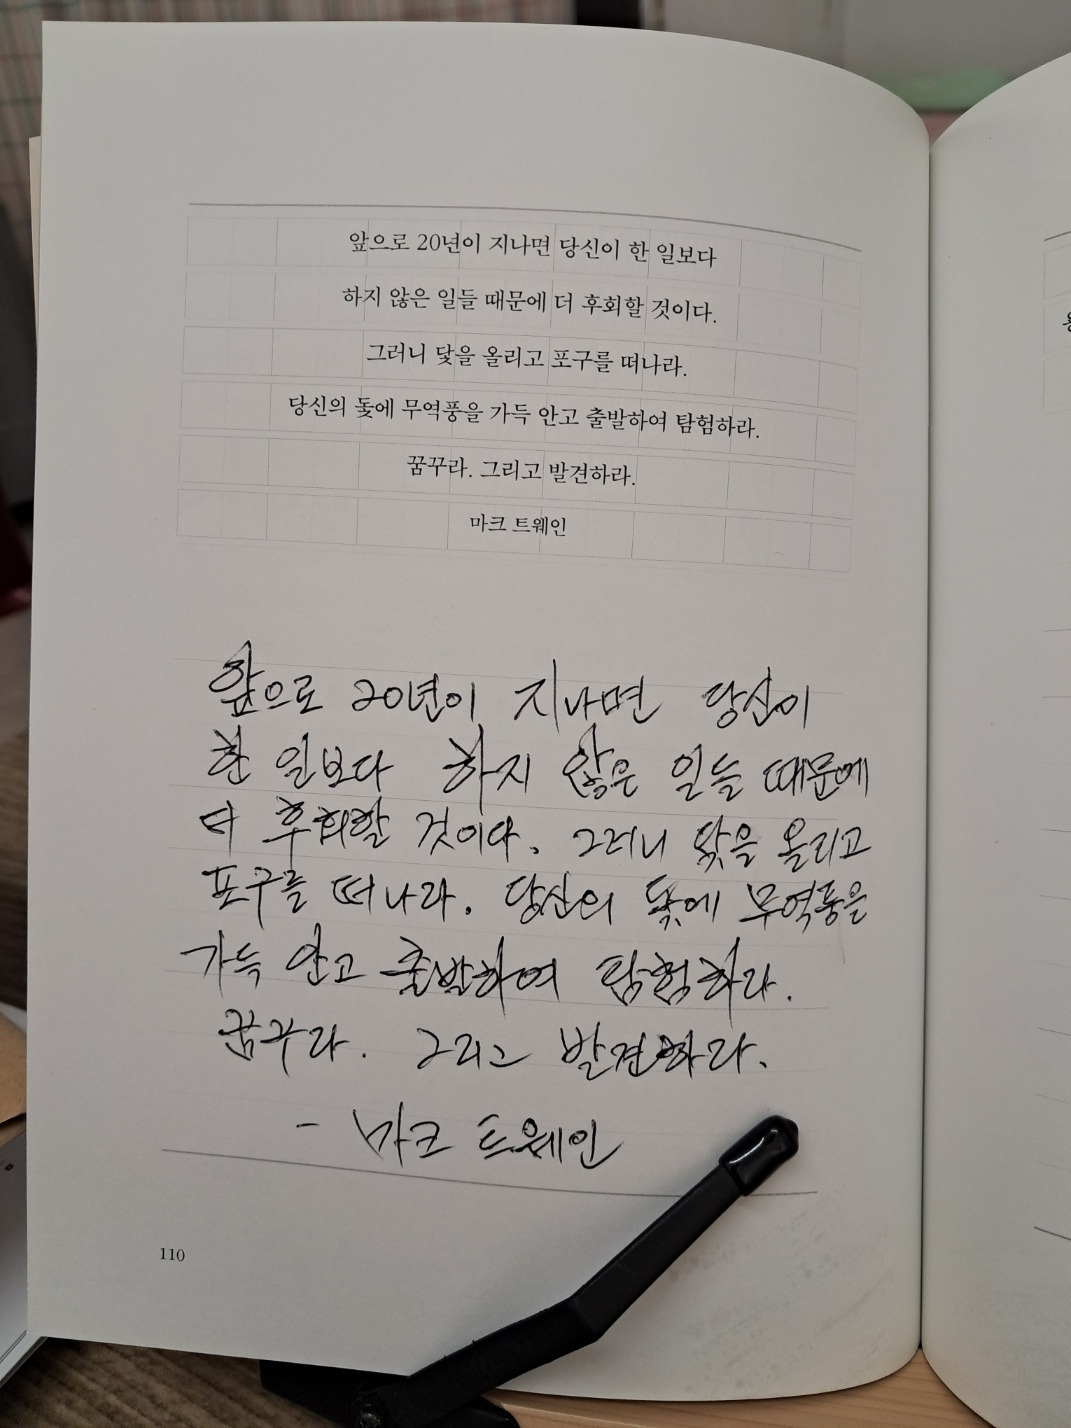 앞으로 20년이 지나면 당신이 한 일보다
하지 않은 일들 때문에 더 후회할 것이다.
그러니 닻을 올리고 포구를 떠나라.
당신의 돛에 무역풍을 가득 안고 출발하여 탐험하라.
꿈꾸라. 그리고 발견하라.
마크 트웨인
앞으로 20년이 지나면 당신이
한 일보다 하지 않은 일들 때문에
더 후회할 것이다. 그러니 닻을 올리고
포구를 떠나라. 당신의 돛에 무역풍을
가득 안고 출발하여 탐험하라.
꿈꾸라. 그리고 발견하라.
- 마크 트웨인
110